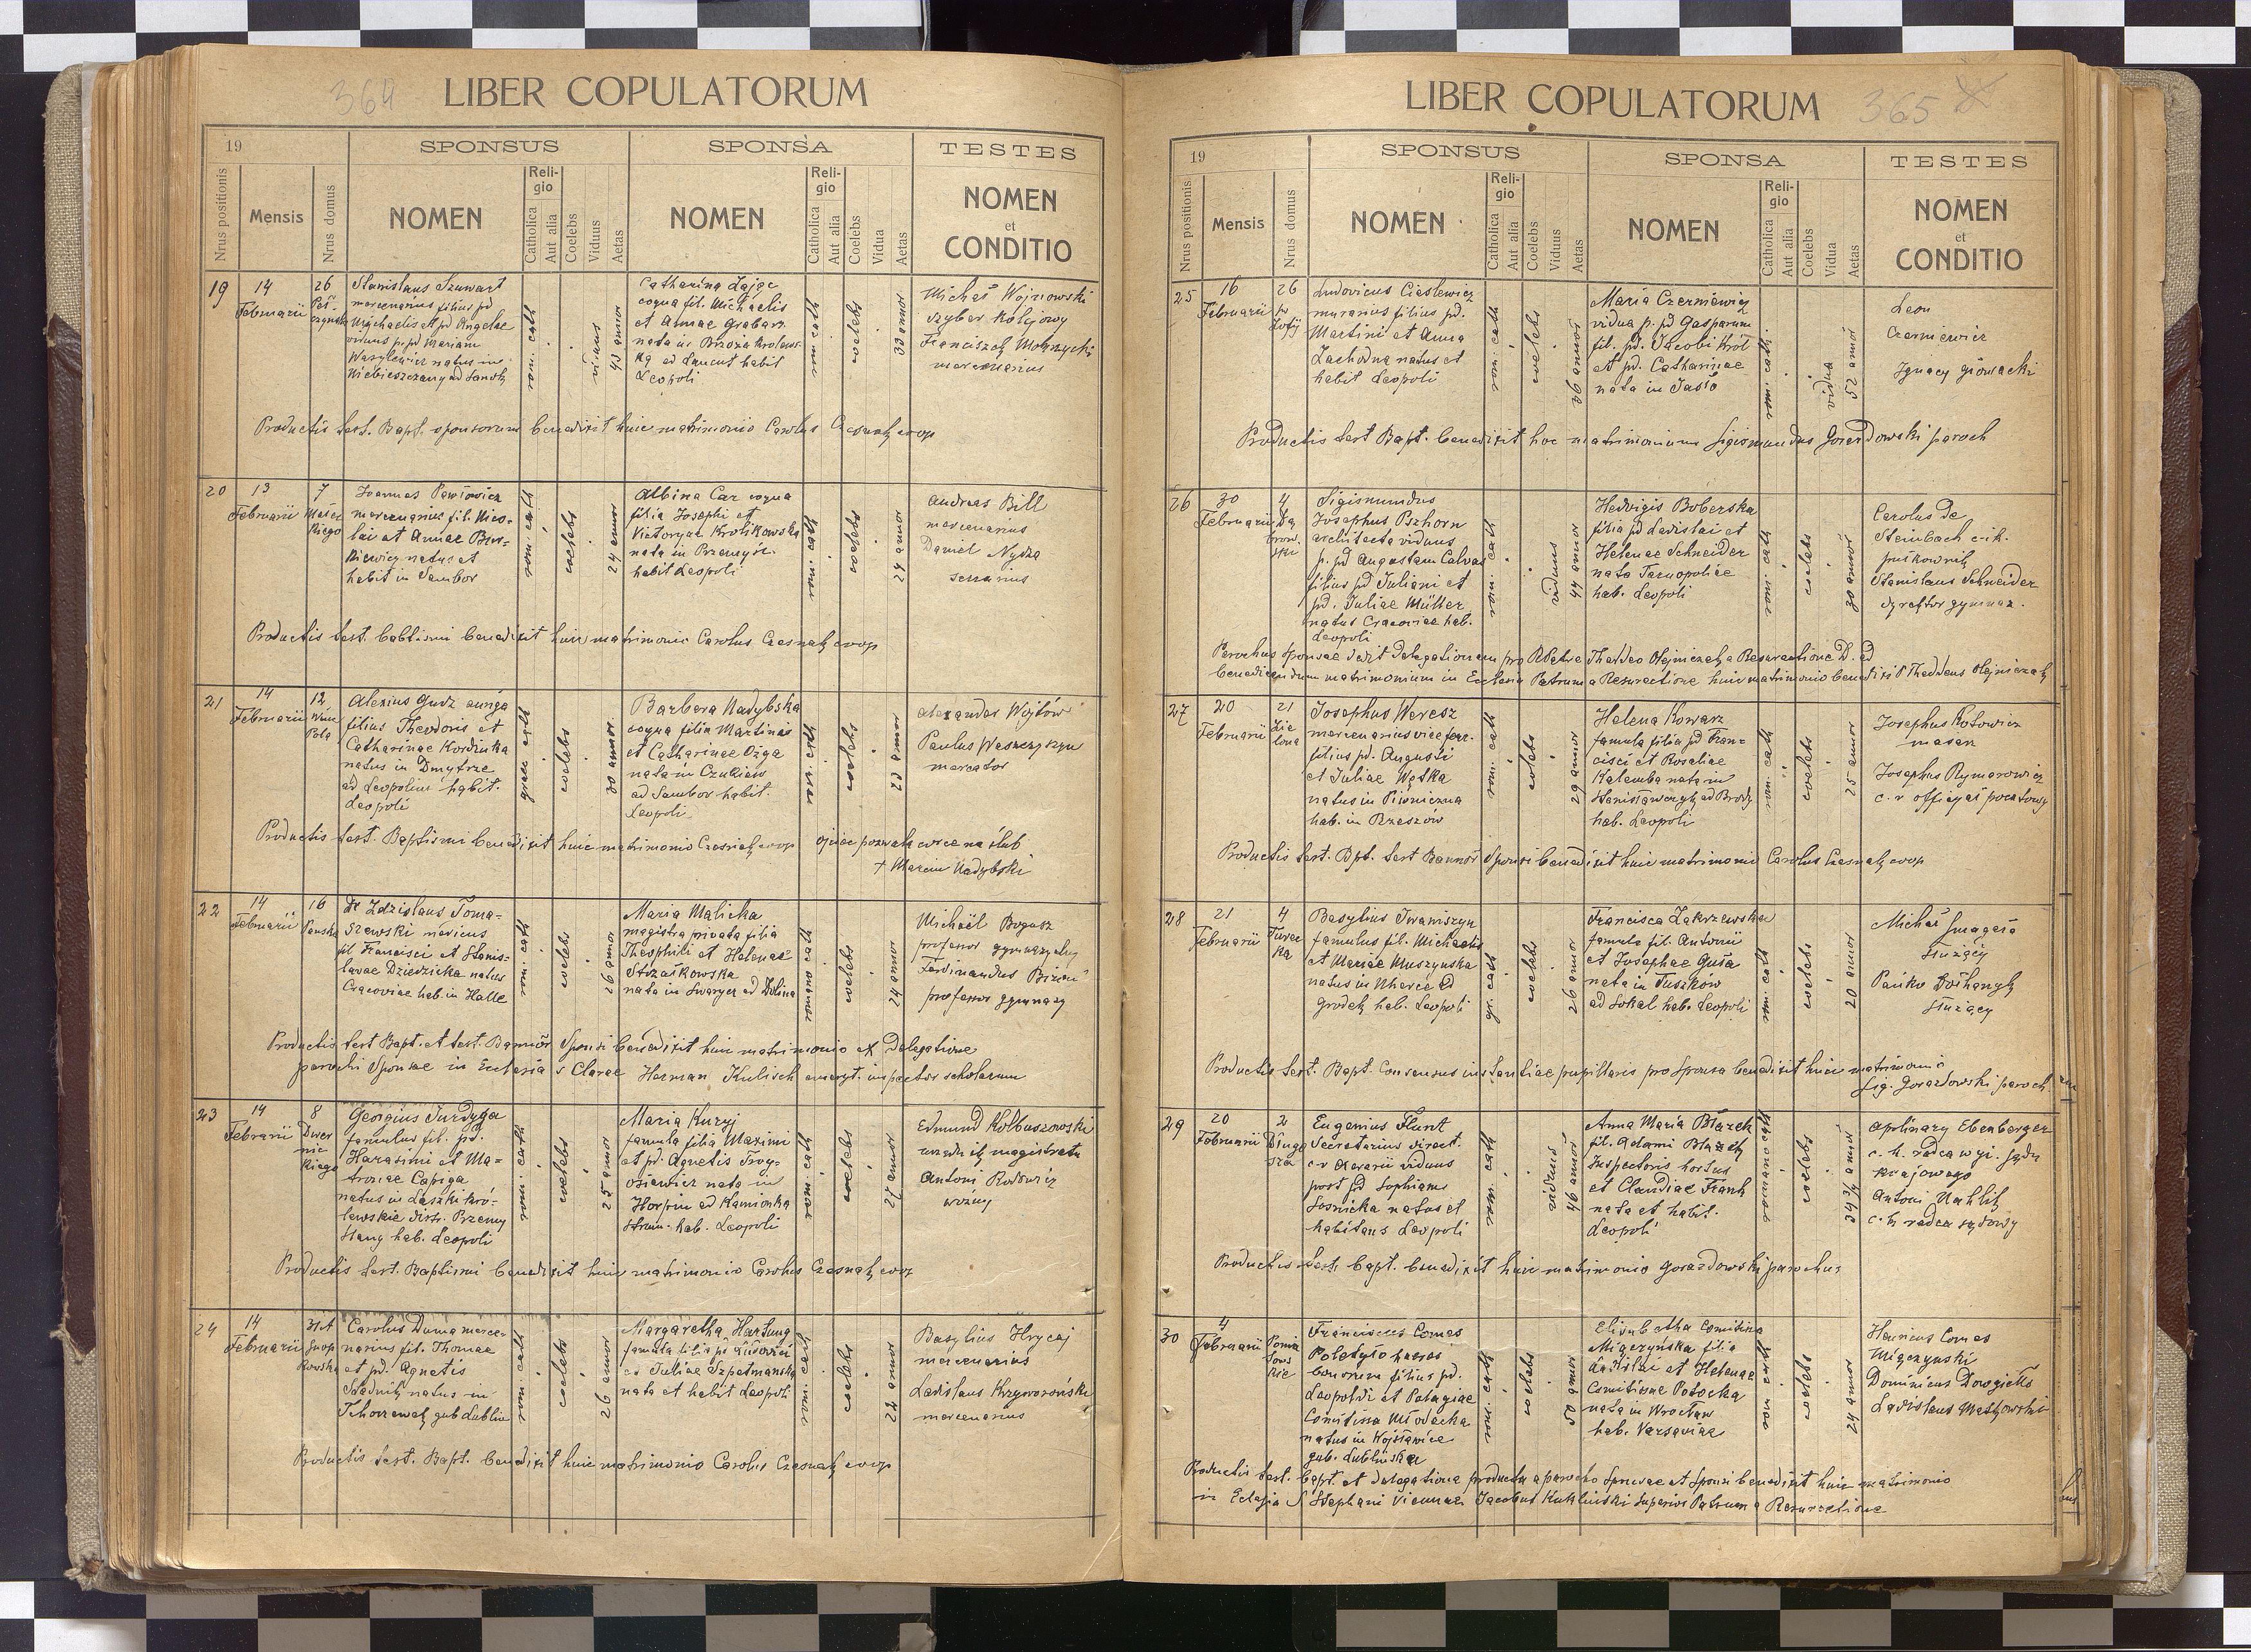 364
LIBER COPULATORUM
19
SPONSUS
SPONSA
TESTES
Nrus positionis
Mensis
Nrus domus
NOMEN
Religio
Catholica
Aut alia
Coelebs
Viduus
Aetas
NOMEN
Religio
Catholica
Aut alia
Coelebs
Vidua
Aetas
NOMEN
et
CONDITIO
19
14
Februarii
26
Stanislaus Szuwart
mercenarius filius pd
Michaelis et pd Angelae
viduus p. pd Mariam
Wasylewicz natus in
rom. cath
viduus
43 annor
Catharina Zając
coqua fil. Michaelis
et Annae Grabarz
nata in Brzoza Krolews-
ka ad Lancut habit
Leopoli
rom cath
coelebs
33 annor
Michaś Wojnowski
szyber kolejowy
Franciszek
mercenarius
Productis test. Bapt. sponsorum benedixit huic matrimonio Carolus Czesnak coop
20
13
Februarii
7
Joannes Pawłowicz
mercenarius fil. Nico-
lai et Annae Bur-
kiewicz natus et
habit in Sambor
rom. cath
coelebs
24 annor
Albina Car coqua
filia Josephi et
Victoryae Krolikowska
nata in Przemyśl.
habit Leopoli
rom. cath
coelebs
24 annor
Andreas Bill
mercenarius
Daniel Nydza
serrarius
Productis test. babtismi benedixit huic matrimonio Carolus Czesnak coop
21
14
Februarii
12
Wulc
Pola
Alexius Gudz auriga
filius Theodoris et
Catharinae Kordiuka
natus in Dmytrze
ad Leopolim habit.
Leopoli
graec cath
coelebs
30 annor
Barbara Nadybska
coqua filia Martinis
et Catharinae Ożga
nata in Czukiew
ad Sambor habit.
Leopoli
rom. cath
coelebs
23 annor
Alexander Wojtów
Paulus Waszczyszyn
mercator
Productis test. Baptismi benedixit huic matrimonio Czesnak coop ojciec pozwala corce na ślub
+ Marcin Nadybski
22
14
Februarii
16
Panska
Dr Zdzislaus Toma-
szewski medicus
fil. Francisci et Stanis-
lavae Dziedzicka natus
Cracoviae hab. in Halle
rom. cath
coelebs
26 annor
Maria Malicka
magistra privata filia
Theophili et Helenae
Strzałkowska
nata in Swaryczów ad Dolina
coelebs
24 annor
Michaël Bogusz
profesor gymnazyalny
Ferdinandus
professor gymnazy
Productis test Bapt. et test. Bannor Sponsi benedixit huic matrimonio ex Delegatione
parochi Sponsae in Ecclesia S Clarae Herman Kulisch emeryt. inspector scholarum
23
14
Februarii
8
Dwer
nic
kiego
Georgius Turdyga
famulus fil. pd.
Harasimi et Ma-
tronae Capiga
natus in Laszki kró-
lewskie distr. Przemy
slany hab. Leopoli
rom. cath
coelebs
25 annor
Maria Kuryj
famula filia Maximi
et pd. Agnetis
nata in
Horpin ad Kamionka
Strum. hab. Leopoli
rom. cath
coelebs
27 annor
Edmund Kolbuszowski
urzednik magistratu
Antoni
woźny
Productis test. Baptismi benedixit huic matrimonio Carolus Czesnak coop
24
14
Februarii
31A
Carolus Duma merce-
narius fil. Thomae
et pd. Agnetis
natus in
gub Lublin
rom. cath
coelebs
26 annor
Margaretha Hartung
famula filia pd
et Juliae Szpetmanska
nata et habit Leopoli
rom. cath
coelebs
22 annor
Basylius Hrycaj
mercenarius
Ladislaus Krzyworoński
mercenarius
Productis test. Bapt. benedixit huic matrimonio Carolus Czesnak coop
LIBER COPULATORUM
365
19
SPONSUS
SPONSA
TESTES
Nrus positionis
Mensis
Nrus domus
NOMEN
Religio
Catholica
Aut alia
Coelebs
Viduus
Aetas
NOMEN
Religio
Catholica
Aut alia
Coelebs
Vidua
Aetas
NOMEN
et
CONDITIO
25
16
Februarii
26
św
Zofij
Ludovicus Cieslewicz
murarius filius pd.
Martini et Anna
Zachodna natus et
habit Leopoli
rom. cath
coelebs
36 annor
Maria Czerniewicz
vidua p. pd Gasparum
fil. pd. Jacobi Król
et pd. Catharinae
nata in Jasło
rom. cath.
vidua
52 annor
Leon
Czerniewicz
Ignacy Głowacki
Productis test Bapt. benedixit hoc matrimonium Sigismundus Gorazdowski paroch
26
30
Februarii
4
Dą
brow.
ski
Sigismundus
Josephus Pszhorn
architecta viduus
p. pd Augustam Calvas
filius pd Juliani et
pd. Juliae Müller
natus Cracoviae hab.
Leopoli
rom. cath
viduus
44 annor
Hedvigis Boberska
filia pd Ladislai et
Helenae Schneider
nata Tarnopoliae
hab. Leopoli
rom. cath
coelebs
30 annor
Carolus de
Steinbach c-ik.
pułkownik
Stanislaus Schneider
dyrektor gymnaz.
Parochus Sponsae dedit delegationem pro Patre Thadeo Olejniczak a Resurectione D. ad
benedicendum matrimonium in Ecclesia Patrum a Resurectione huic matrimonio benedixit Thaddeus Olejniczak
27
20
Februarii
21
Zie
lona
Josephus Weresz
mercenarius viae ferr.
filius pd. Augusti
et Juliae Wątka
natus in Piwniczna
hab. in Rzeszów
rom. cath
coelebs
29 annor
Helena Kowarz
famula filia pd Fran-
cisci et Rosaliae
Kalemba nata in
Stanisławczyk ad Brody
hab. Leopoli
rom. cath
coelebs
25 annor
Josephus Kotowicz
masarz
Josephus Rymarowicz
c. k officyał pocztowy
Productis test. Bpt. test Bannor Sponsi benedixit huic matrimonio Carolus Czesnak coop
28
21
Februarii
4
Turec
ka
Basylius Iwaniszyn
famulus fil. Michaelis
et Mariae Muszynska
natus in Uherce ad
Grodek hab. Leopoli
gr. cath
coelebs
26 annor
Francisca Zakrzewska
famula fil. Antonii
et Josephae Guła
nata in Tuszków
ad Sokal hab. Leopoli
rom. cath
coelebs
20 annor
Michał Smagała
służący
Pańko Bołhanyk
służący
Productis test. Bapt. Consensus instantiae pupillaris pro Sponsa benedixit huic matrimonio
Sig. Gorazdowski paroch.
29
20
Februarii
2
Długo
sza
Eugenius Flunt
Secretarius direct.
c-r Aerarii viduus
post pd Sophiam
Sosnicka natus et
habitans Leopoli
rom. cath
viduus
46 annor
Anna Maria Błażek
fil. Adami Błażek
Inspectoris hortus
et Claudiae Frank
nata et habit.
Leopoli
romano cath
coelebs
34 3/4 annor
Aplinary Ebenberger
c. k. radca wyż. sądu
krajowego
Antoni Nahlik
c. k radca sądowy
Productis test. bapt. benedixit huic matrimonio Gorazdowski parochus
30
4
Februarii
Franciscus Comes
Poletyło haeres
bonorum filius pd.
Leopoldi et Pelagiae
Comitissa Młodecka
natus in Wojsławice
gub. Lublinska
rom. cath
coelebs
50 annor
Elisabetha Comitissa
Miączyńska filia
Ladislai et Helenae
Comitissae Potocka
nata in Wrocław
hab. Varsaviae
rom cath
coelebs
24 annor
Henricus Comes
Miączynski
Dominicus Dowgiełło
Ladislaus
Productis test. bapt. et delegatione producta a parocho Sponsae et Sponsi benedixit huic matrimonio
in Eclesia S Stephani Viennae Jacobus Kukliński Superior Patrum a Resurrectione